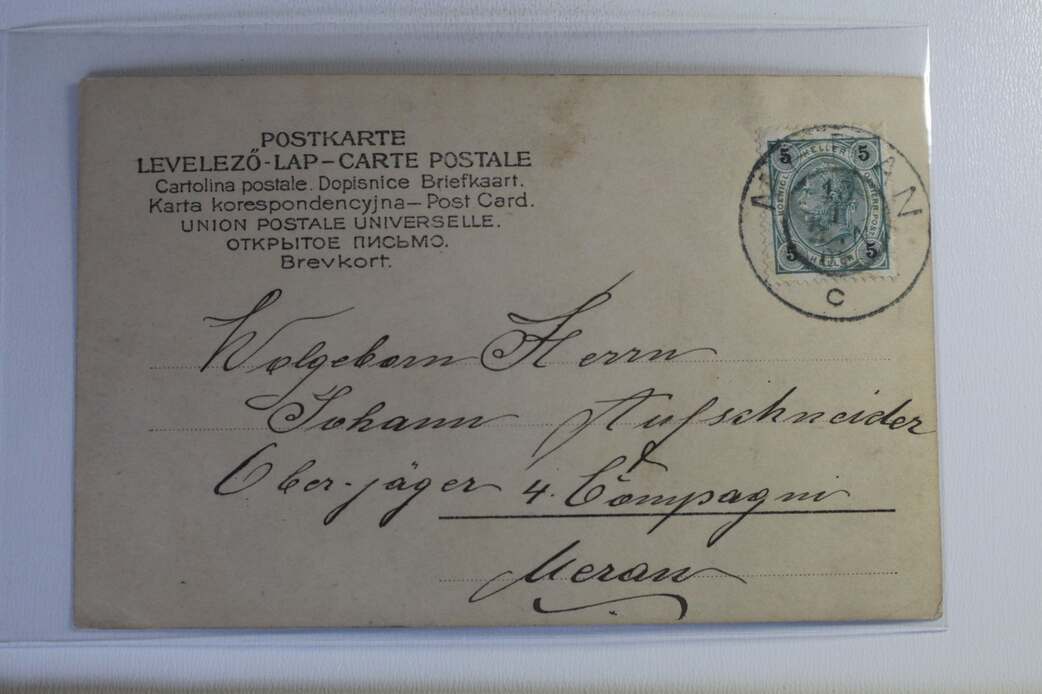 POSTKARTE
LEVELEZŐ-LAP–CARTE POSTALE
Cartolina postale. Dopisnice Briefkaart.
Karta korespondencyjna — Post Card.
UNION POSTALE UNIVERSELLE.
ОТКРЫТОЕ ПИСЬМО.
Brevkort.
5 HELLER 5
5 HELLER 5
C
Wolgeborn Herrn
Johann Aufschneider
Ober-jäger 4. Compagni
Meran